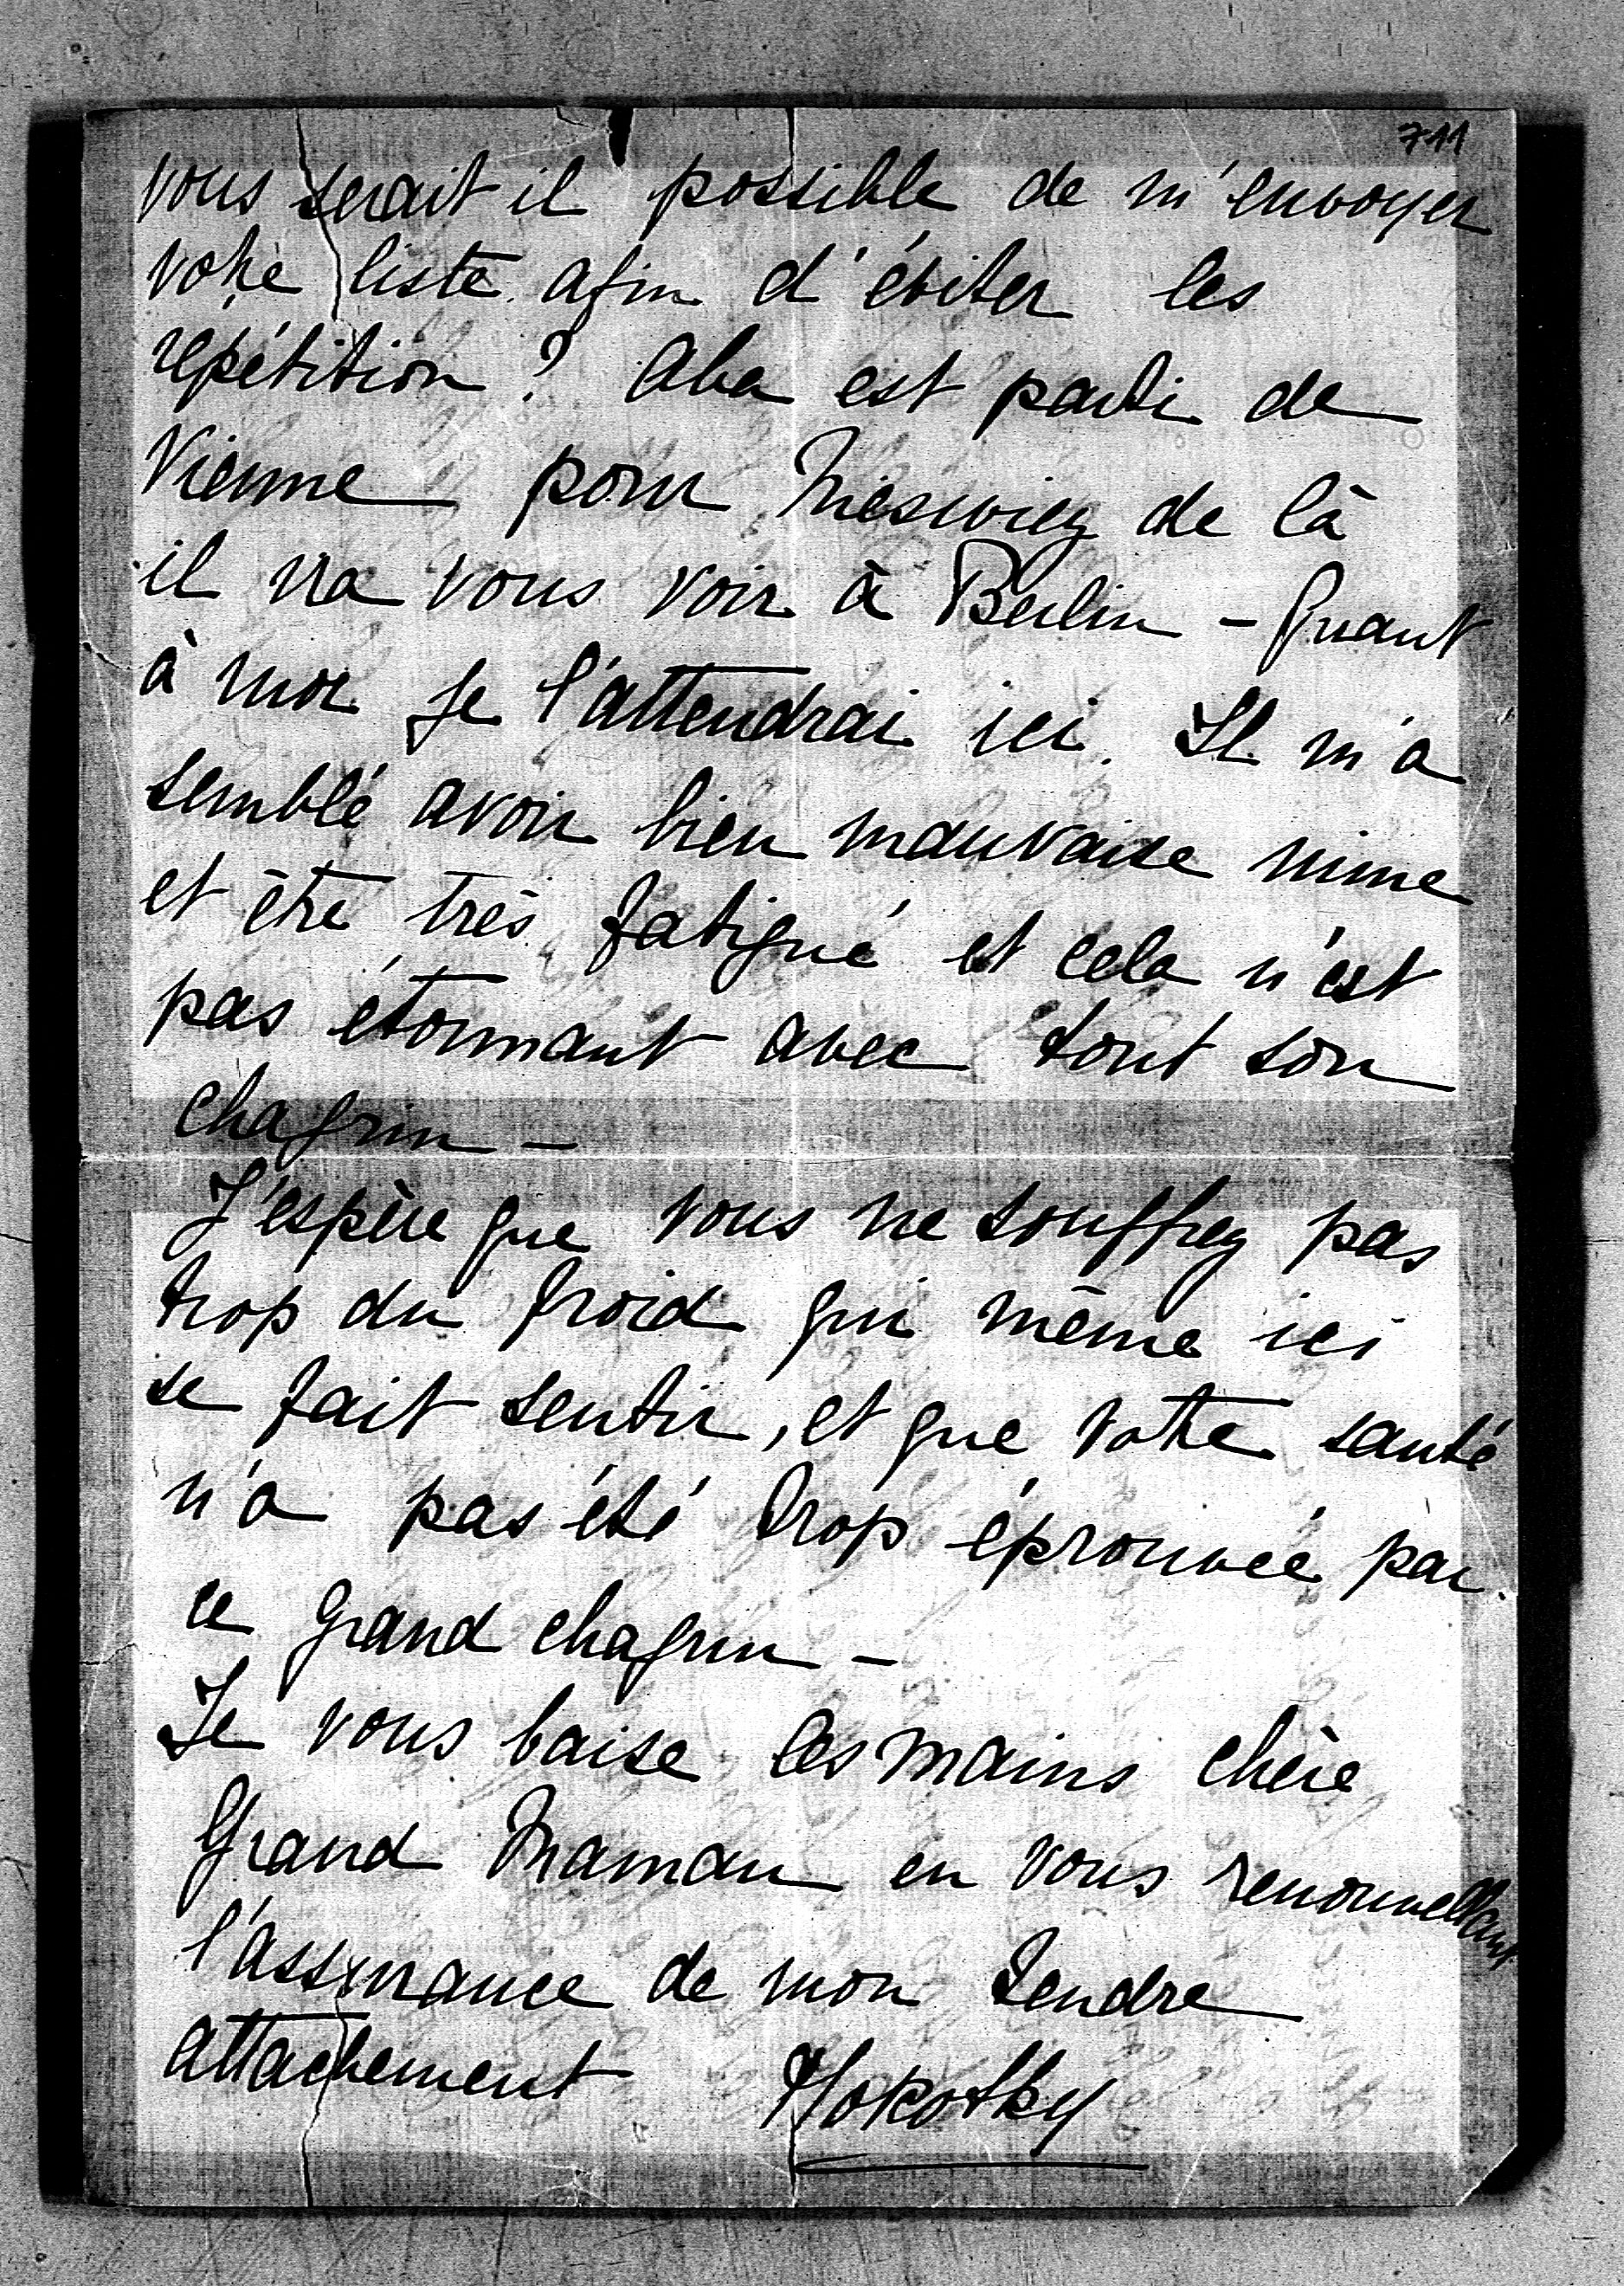 711
vous serait il possible de m'envoyer
votre liste afin d'éviter les
répétition ? Aba est parti de
Vienne pour Nieswiez de là
il va vous voir à Berlin - Quant
à moi je l'attendrai ici. Il m'a
semblé avoir bien mauvaise mine
et être très fatigué et cela n'est
pas étonnant avec tout son
chagrin -
J'espère que vous ne souffrez pas
trop du froid qui même ici
se fait sentir, et que votre santé
n'a pas été trop éprouvée par
ce grand chagrin -
Je vous baise les mains chère
Grand Maman en vous renouvellant
l'assurance de mon tendre
attachement